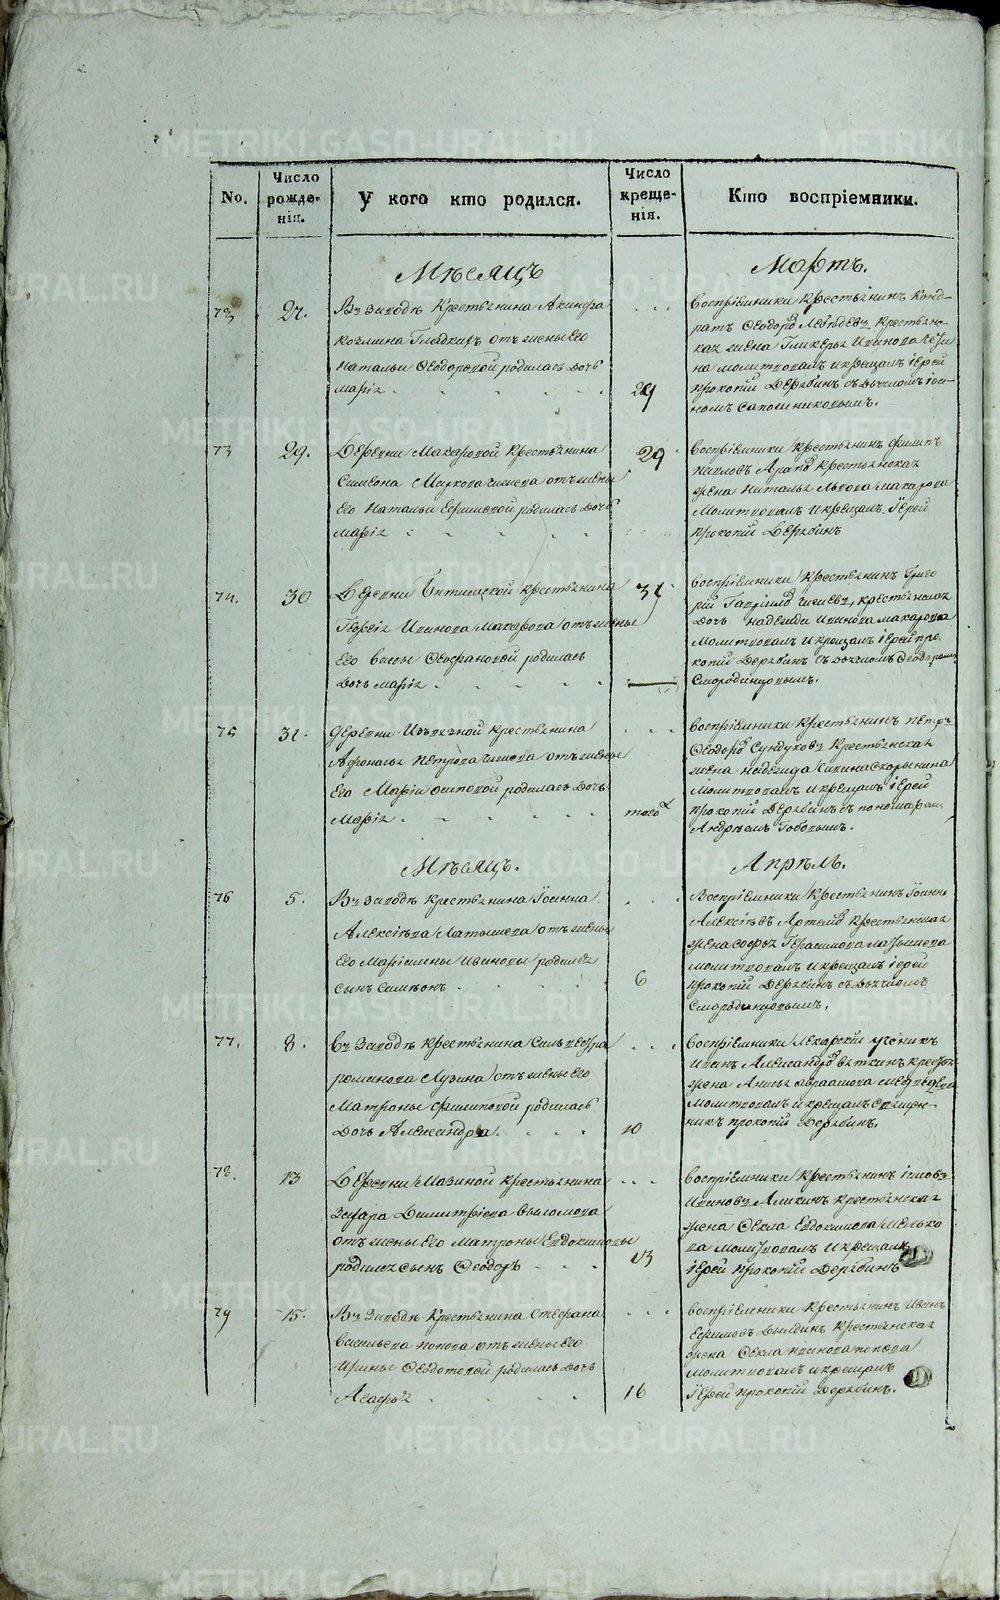 METRIKI.GASO-URAL.RU
No.
Число рожде-нія.
У кого кто родился.
Число креще-нія.
Кто воспріемники.
Мѣсяцъ
Мартъ.
73
27.
Въ заводѣ Крестьянина Акинфа
Гладкихъ отъ жены его
Натальи Ѳеодоровой родилась дочь
Марія
29
Воспріемники Крестьянинъ Конд-
ратъ Ѳеодоровъ Крестьянс-
кая жена Гликерья Иванова
молитвовалъ и крещалъ Іерей
Прокопій Дерябинъ съ дьячкомъ Іоан-
номъ Сапожниковымъ.
73
29.
Деревни Макаровой Крестьянина
Симеона отъ жены
его Натальи Ефимовой родилась дочь
Марія
29
Воспріемники Крестьянинъ Филипъ
Крестьянская
жена Наталья Львова Макарова
Молитвовалъ и крещалъ Іерей
Прокопій Дерябинъ
74.
30
Деревни Крестьянина
Георгія Иванова Макарова отъ жены
его Ѳеофановой родилась
дочь Марія
31
Воспріемники Крестьянинъ Григо
рій крестьянская
дочь Надежда Иванова Макарова
Молитвовалъ и крещалъ Іерей Про
копій Дерябинъ съ дьячкомъ Ѳеодоромъ
Смородинцовымъ.
75
31.
Деревни Крестьянина
Афонасья Петрова отъ жены
его Маріи Осиповой родилась дочь
Марія
того
Воспріемники Крестьянинъ Петръ
Ѳеодоровъ Сундуковъ Крестьянская
жена Надежда Скорынина
Молитвовалъ и крещалъ Іерей
Прокопій Дерябинъ съ пономаремъ
Андреемъ
Мѣсяцъ.
Апрѣль.
76
5.
Въ заводѣ Крестьянина Іоанна
Алексѣева Латышева отъ жены
его Маріамны Ивановы родился
сынъ Симеонъ
6
Воспріемники Крестьянинъ Іоаннъ
Алексѣевъ Крестьянская
жена Софья Герасимова Латышева
молитвовалъ и крещалъ Іерей
Прокопій Дерябинъ съ дьячкомъ
Смородинцовымъ.
77.
8.
Въ заводѣ Крестьянина Сильвестра
Романова Лузина отъ жены его
Матроны Филиповой родилась
дочь Александра.
10
Воспріемники Лекарскій ученикъ
Иванъ Александровъ Вяткинъ Крестья
жена Анисья Абрамова Медведева
молитвовалъ и крещалъ Священ-
никъ Прокопій Дерябинъ.
78.
13
Деревни Мазиной Крестьянина
Захара Димитріева
отъ жены его Матроны Евдокимовы
родился сынъ Ѳеодоръ
13
Воспріемники Крестьянинъ Іаковъ
Ивановъ Аликинъ Крестьянская
жена Ѳекла Евдокимова Мелько
ва молитвовалъ и крещалъ
Іерей Прокопій Дерябинъ
79
15.
Въ заводѣ Крестьянина Стефана
Васильева Попова отъ жены его
Ирины Ѳеодотовой родилась дочь
Агафья
16
Воспріемники Крестьянинъ Иванъ
Ефимовъ Крестьянская
жена Ѳекла Иванова Попова
молитвовалъ и крещалъ
Іерей Прокопій Дерябинъ.